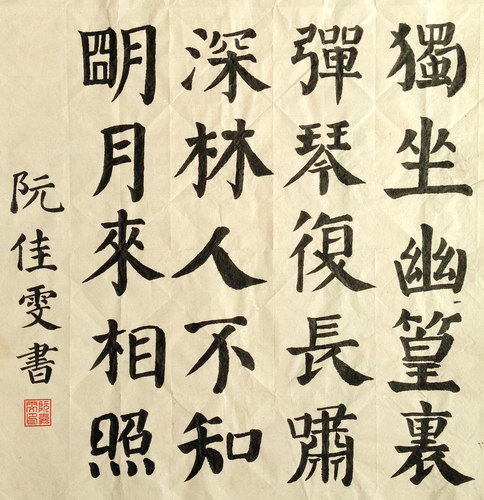 獨坐幽篁裏
彈琴復長嘯
深林人不知
明月來相照
阮佳雯書